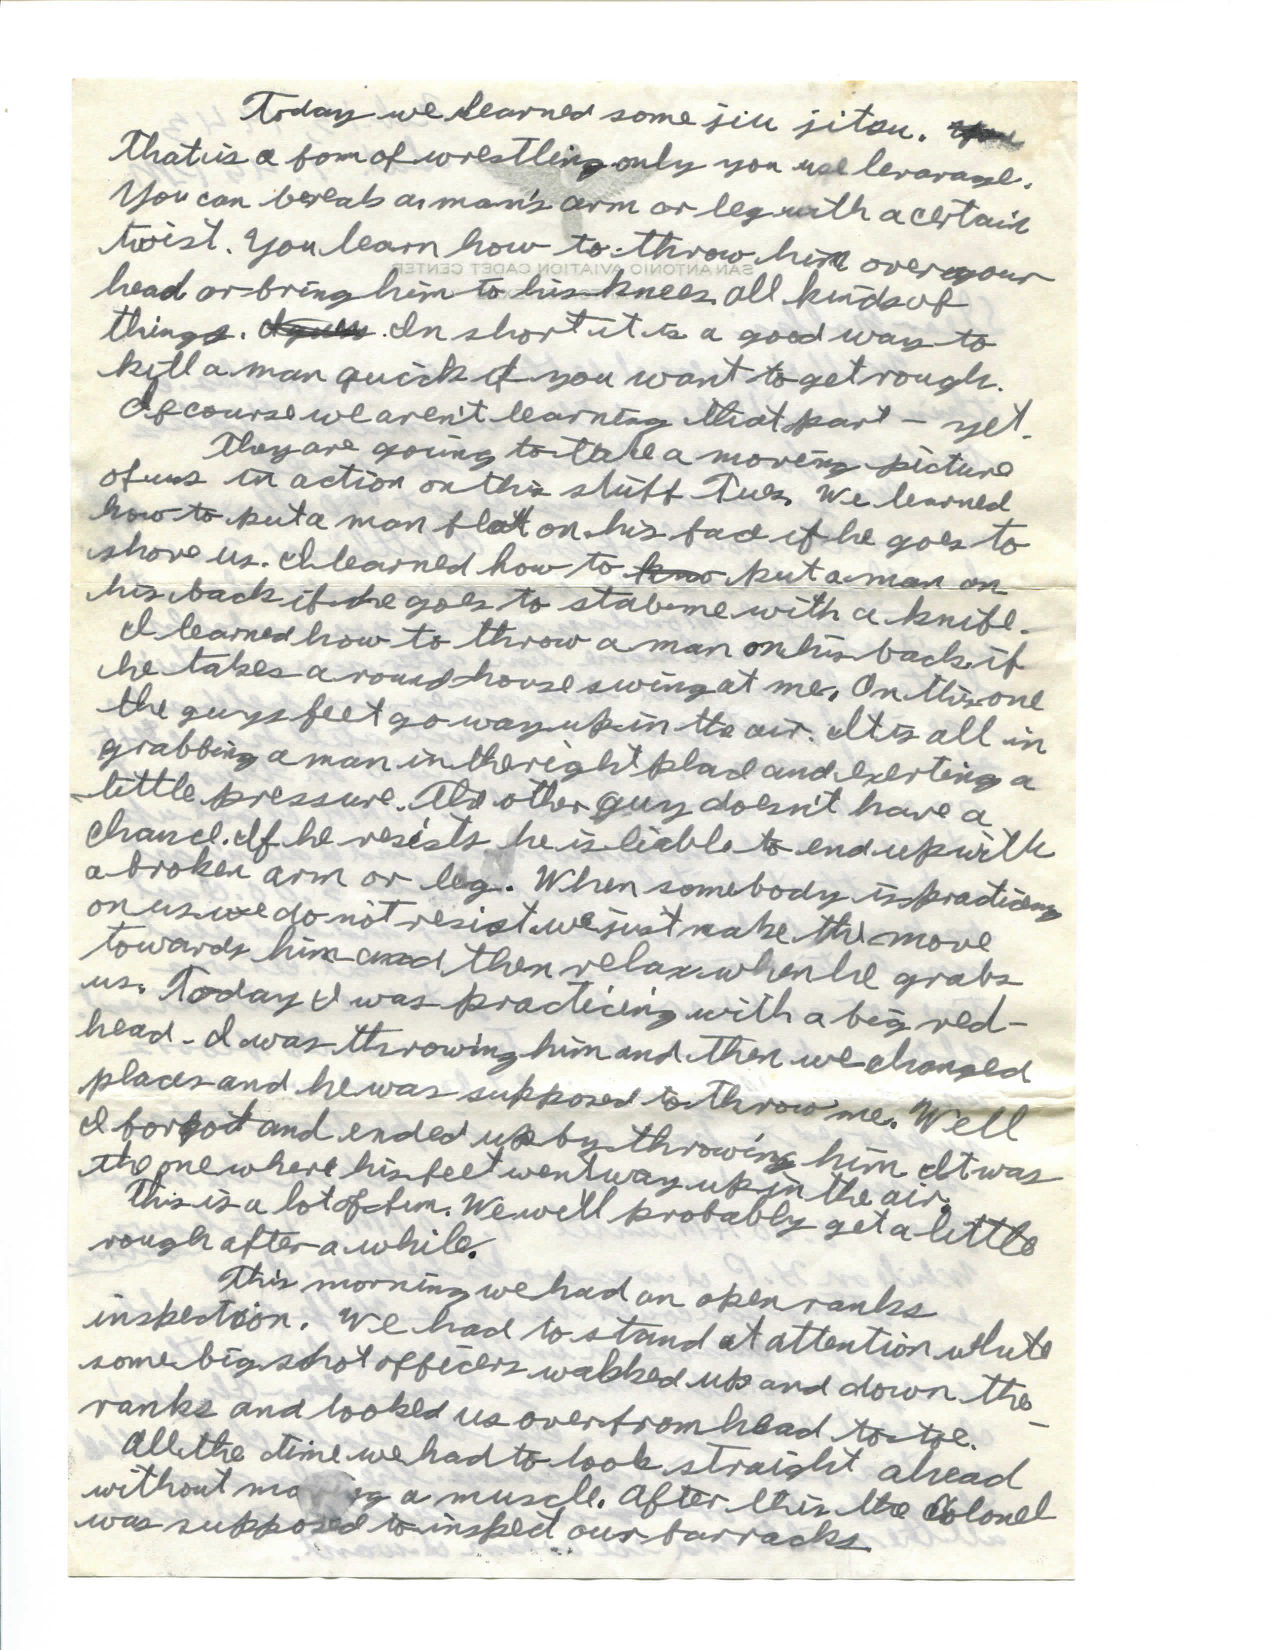 Today we learned some jiu jitsu.
That is a form of wrestling only you use levarage.
You can bereak a man's arm or leg with a certain
twist. You learn how to throw him over your
SAN ANTONIO AVIATION CADET CENTER
head or bring him to his knees all kinds of
things. In short it is a good way to
kill a man quick if you want to get rough.
Of course we aren't learning that part – yet.
They are going to take a moving picture
of us in action on this stuff Tues. We learned
how to put a man flat on his face if he goes to
shove us. I learned how to put a man on
his back if he goes to stab me with a knife.
I learned how to throw a man on his back if
he takes a round house swing at me. On this one
the guys feet go way up in the air. It is all in
grabbing a man in the right place and exerting a
little pressure. The other guy doesn't have a
chance. If he resists he is liable to end up with
a broken arm or leg. When somebody is practicing
on us we do not resist we just make the move
towards him and then relax when he grabs
us. Today I was practicing with a big red-
head - I was throwing him and then we changed
places and he was supposed to throw me. Well
I forgot and ended up by throwing him. It was
the one where his feet went way up in the air.
This is a lot of fun. We will probably get a little
rough after a while.
This morning we had an open ranks
inspection. We had to stand at attention while
some big shot officers walked up and down the
ranks and looked us over from head to toe.
All the time we had to look straight ahead
without moving a muscle. After this the Colonel
was supposed to inspect our barracks